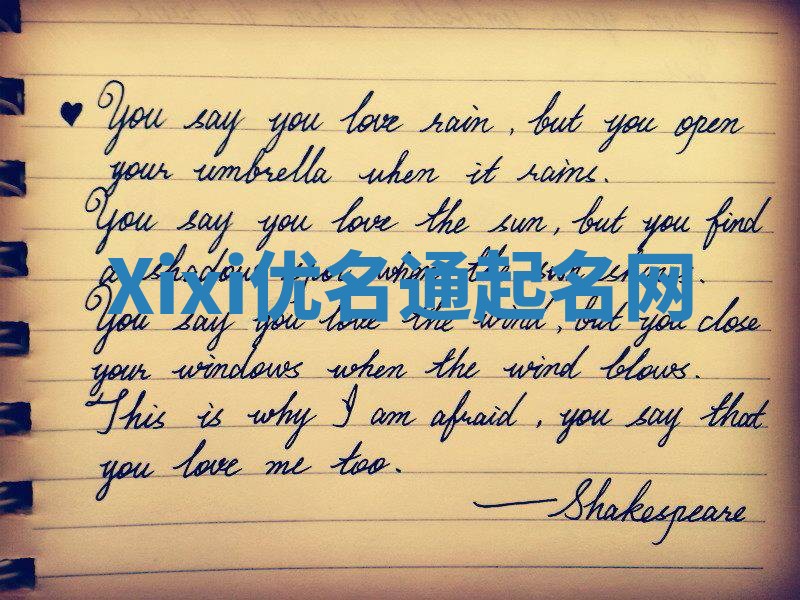 ♥ You say you love rain, but you open
your umbrella when it rains.
You say you love the sun, but you find
a shadow spot when the sun shines.
Xixi优名通起名网
You say you love the wind, but you close
your windows when the wind blows.
This is why I am afraid, you say that
you love me too.
— Shakespeare